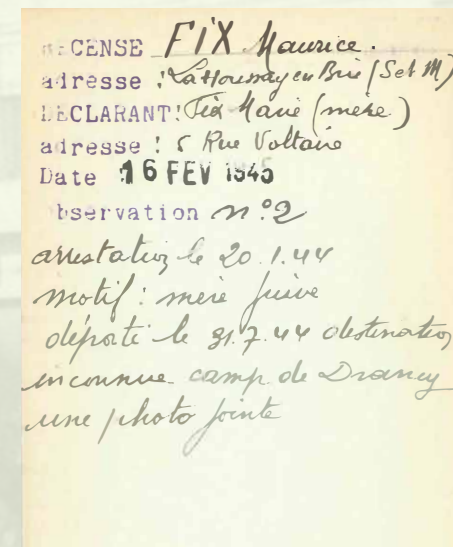 RECENSE FIX Maurice.
adresse : La Houssay en Brie (S et M)
DECLARANT: Fix Marie (mère)
adresse : 5 Rue Voltaire
Date 16 FEV 1945
bservation n°2
arrestation le 20.1.44
motif : mère juive
déporté le 31.7.44 destination
inconnue camp de Drancy
une photo jointe